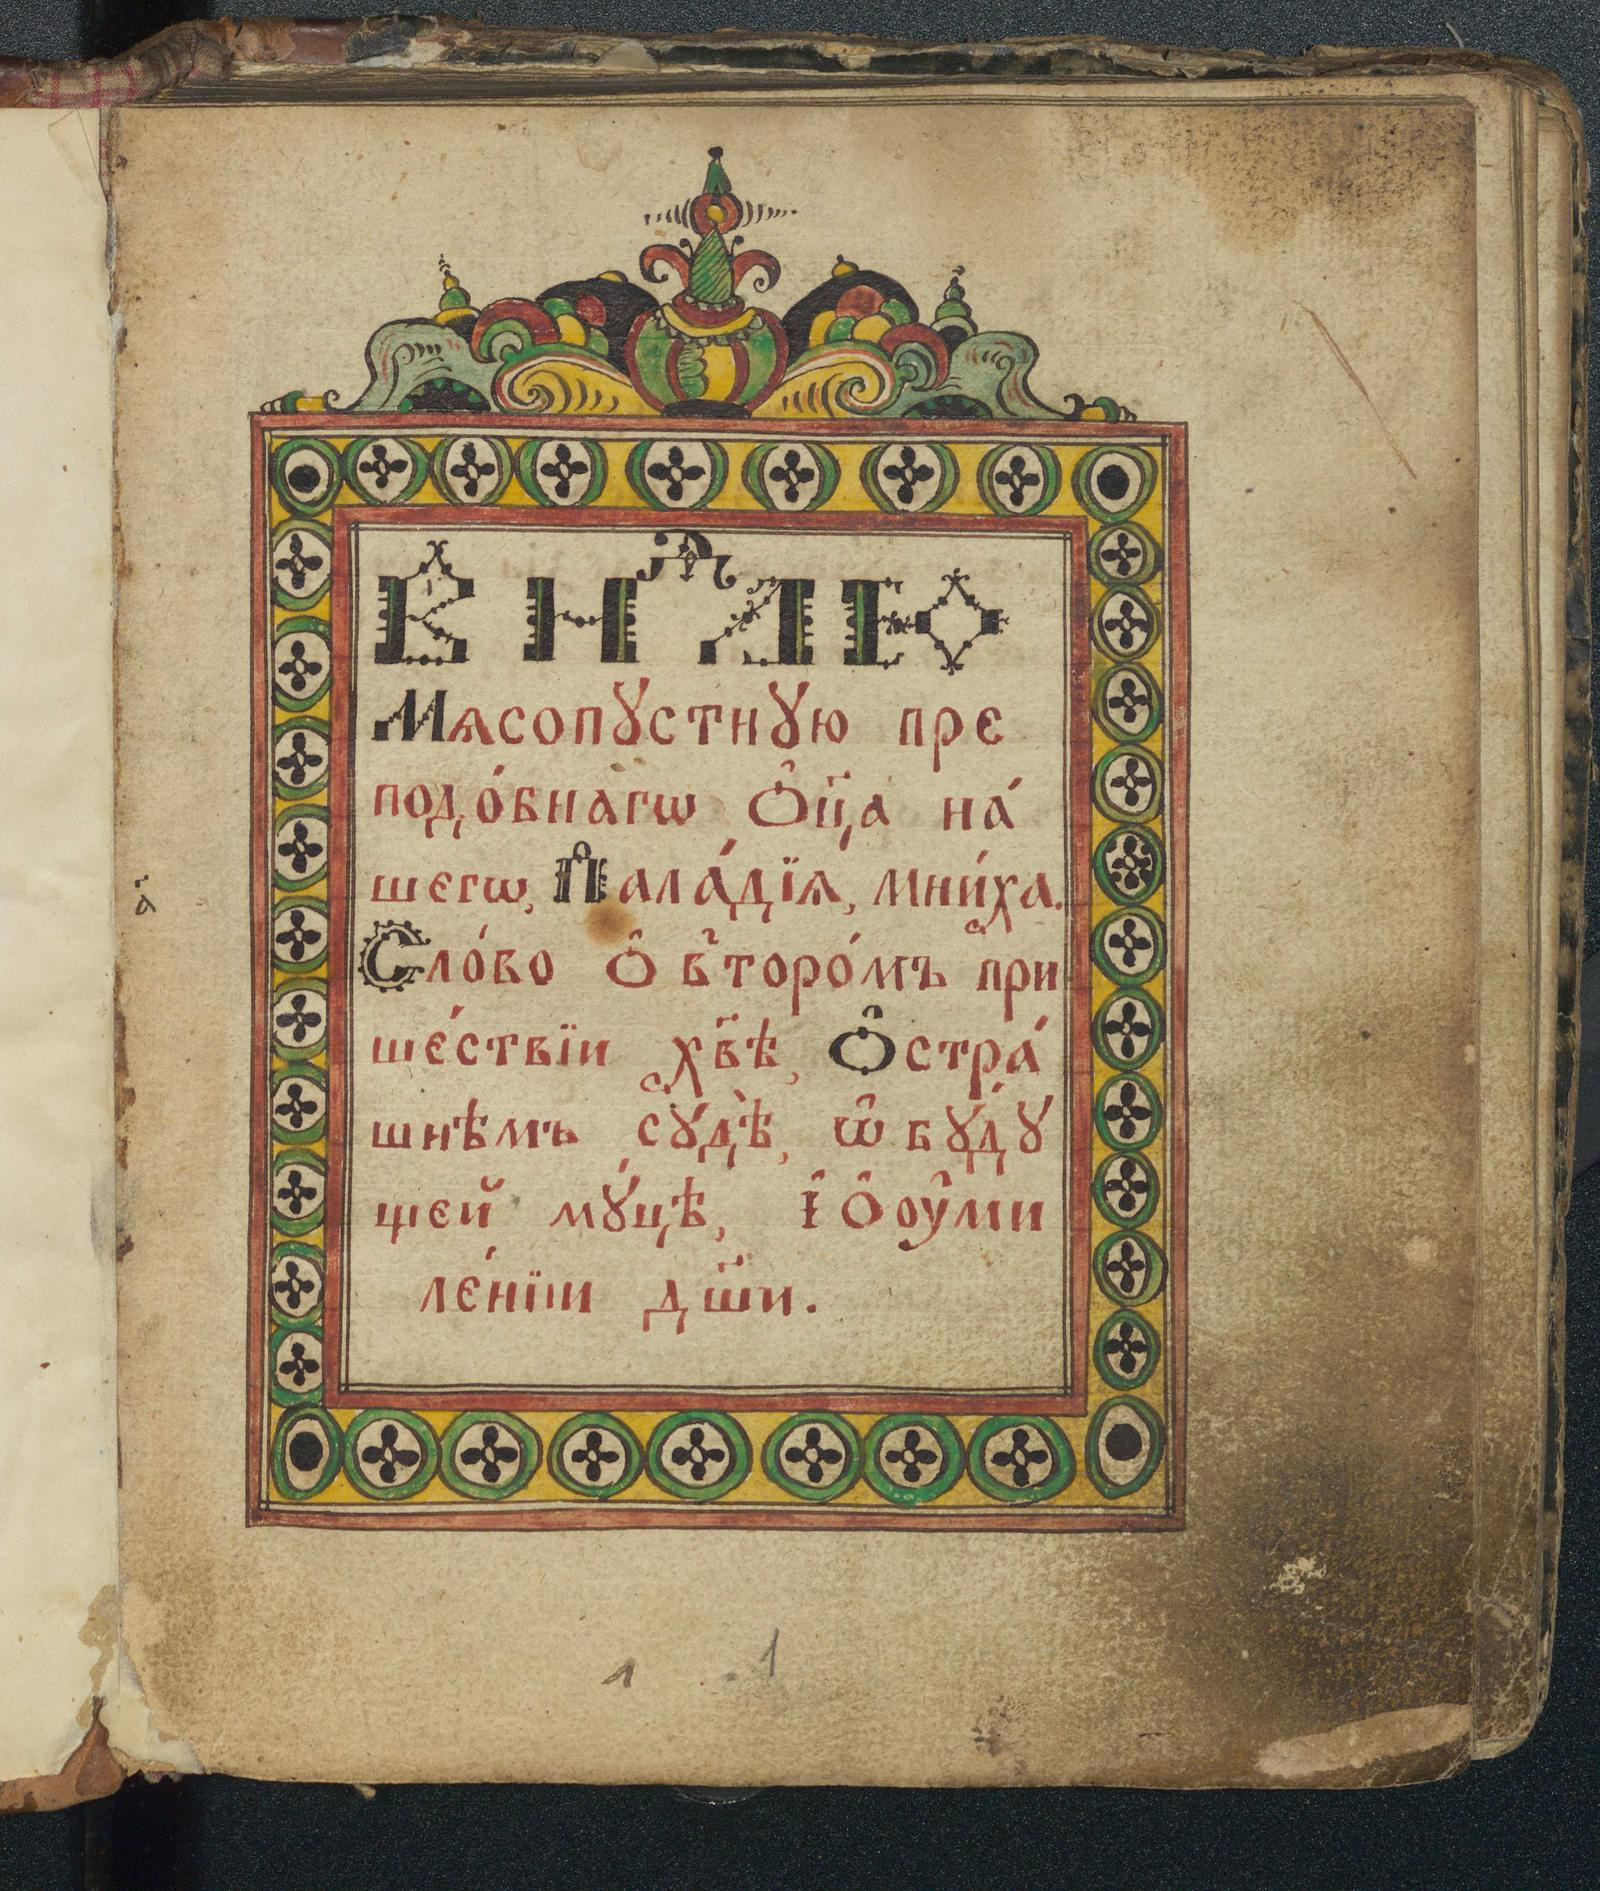 В нлⷣею
Мѧсопꙋстнꙋю пре
подо́бнагѡ Ѻ҆ц҃а на́
шегѡ, Пала́дїѧ, мни́ха.
Сло́во ѻ҆ вто́ро́мъ при
ше́ствїи хв҃ѣ, Ѻ҆стра́
шнѣмъ сꙋдѣ̀, ѡ҆ бꙋ́дꙋ
щей мꙋ́цѣ, І҆ ѻ҆ оу҆ми
ле́нїи дш҃и.
а҃
1 1